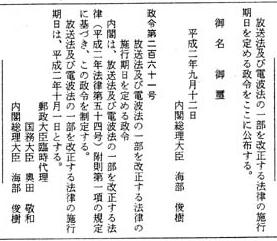 放送法及び電波法の一部を改正する法律の施行
期日を定める政令をここに公布する。
御名 御璽
平成二年九月十二日
内閣総理大臣 海部 俊樹
政令第二百六十一号
放送法及び電波法の一部を改正する法律の
施行期日を定める政令
内閣は、放送法及び電波法の一部を改正する法
律（平成二年法律第五十四号）附則第一項の規定
に基づき、この政令を制定する。
放送法及び電波法の一部を改正する法律の施行
期日は、平成二年十月一日とする。
郵政大臣臨時代理
国務大臣 奥田 敬和
内閣総理大臣 海部 俊樹